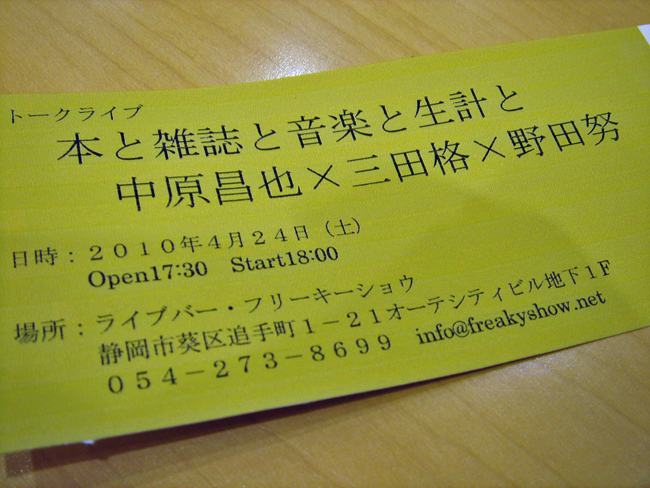 トークライブ
本と雑誌と音楽と生計と
中原昌也×三田格×野田努
日時：２０１０年４月２４日（土）
Open17:30　Start18:00
場所：ライブバー・フリーキーショウ
静岡市葵区追手町１－２１オーテシティビル地下１Ｆ
０５４－２７３－８６９９　info@freakyshow.net